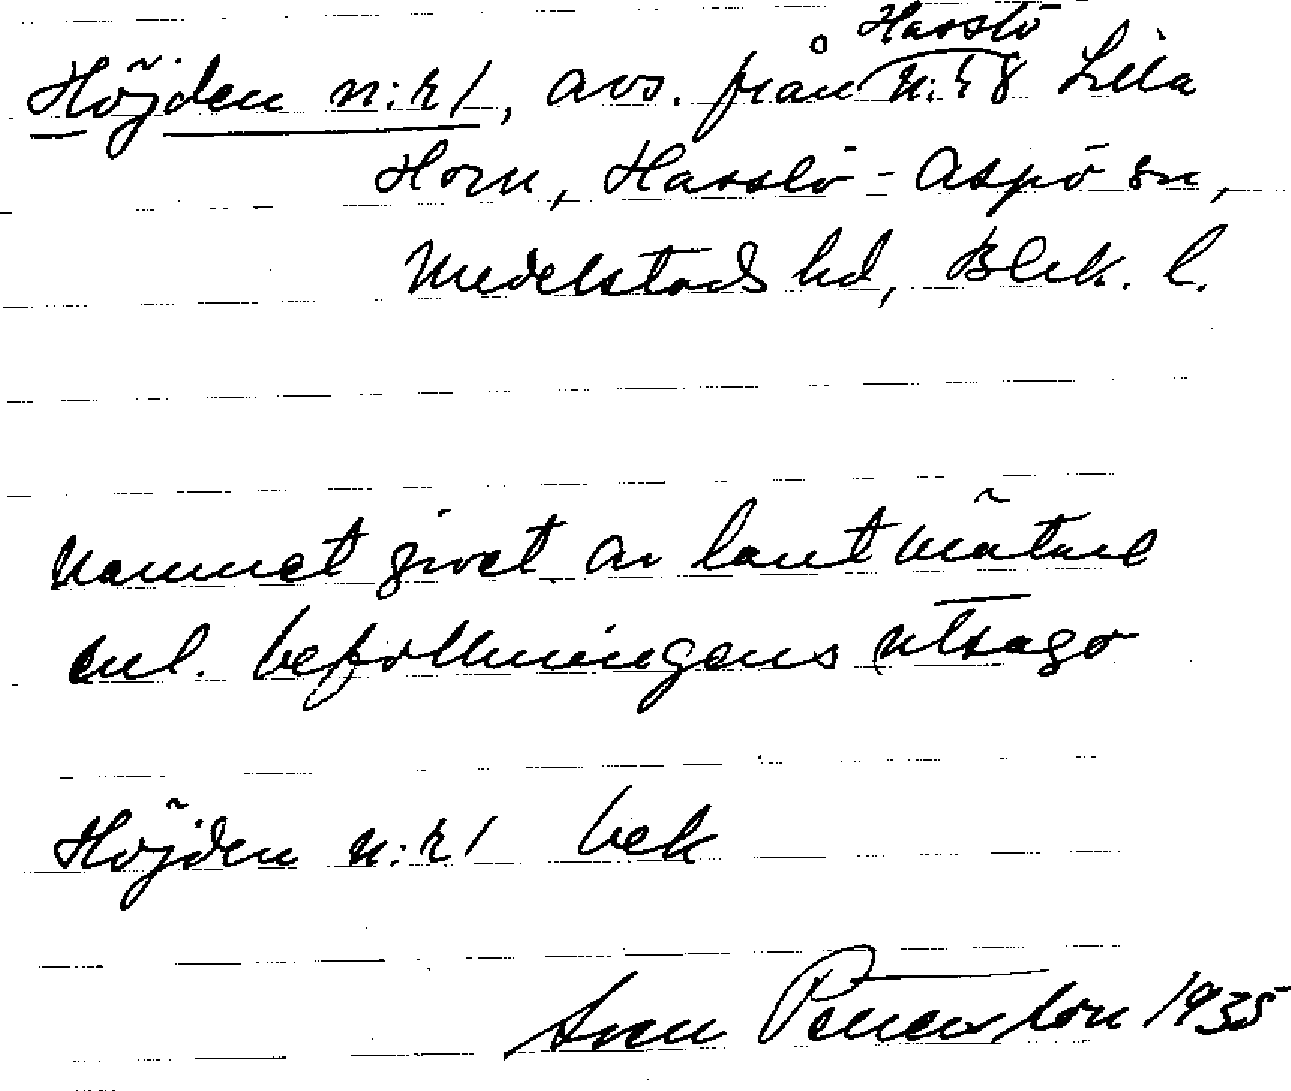 Hasslö
Höjden n:r 1, avs. från n:r 8 Lilla
Horn, Hasslö-Aspö sn,
Medelstads hd, Blek. l.
Namnet givet av lantmätare
enl. befolkningens utsago
Höjden n:r 1 bek
Sven 1935